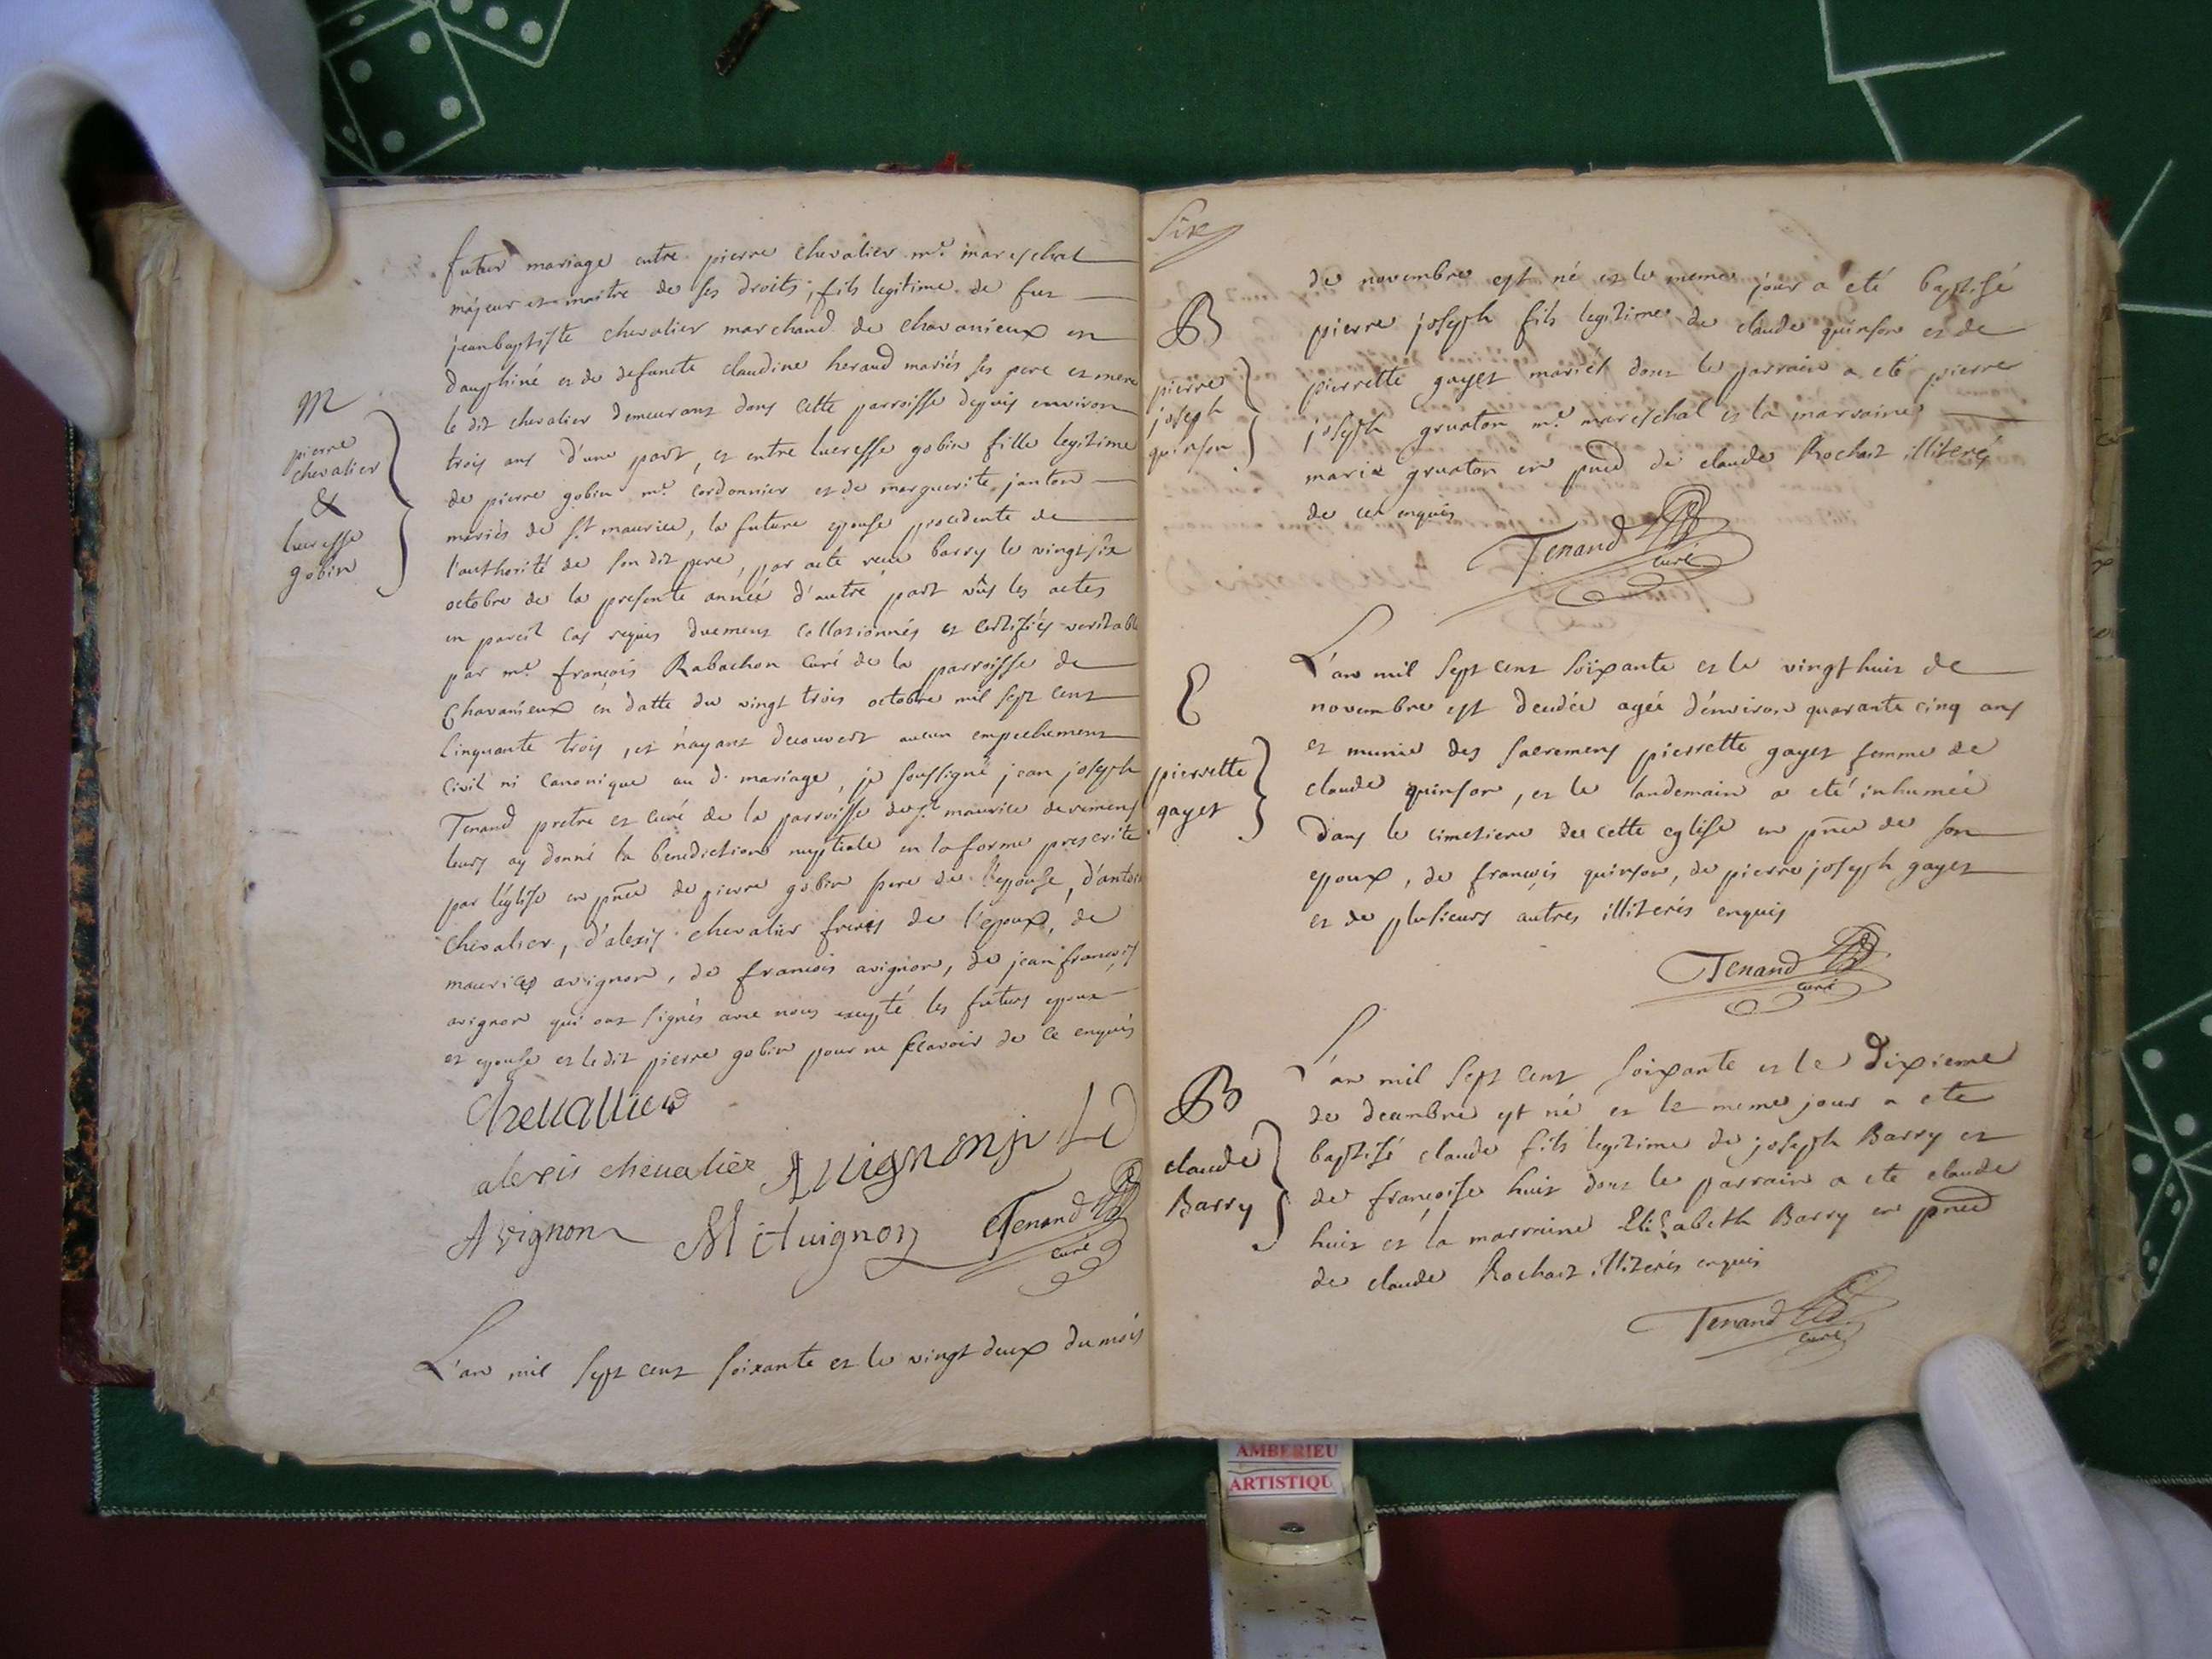 futur mariage entre pierre chevalier m.e mareschal
majeur et maitre de ses droits, fils legitime de feu
jean baptiste chevalier marchand de chavanieux en
dauphiné et de defuncte claudine heraud mariés ses pere et mere
le dit chevalier demeurant dans cette parroisse depuis environ
trois ans d'une part, et entre lucresse gobin fille legitime
de pierre gobin m.e cordonnier et de marguerite janton
mariés de st maurice, la future epouse procedente de
l'authorité de son dit pere, par acte receu barry le vingt six
octobre de la presente année d'autre part vûs les actes
en pareil cas requis duement collationnés et certifiés veritable
par m.e françois Rabachon curé de la parroisse de
Chavanieux en datte du vingt trois octobre mil sept cent
cinquante trois, et n'ayant decouvert aucun empechement
civil ni canonique au d. mariage, je soussigné jean joseph
Tenand pretre et curé de la parroisse de st maurice de remens
leurs ay donné la benediction nuptiale en la forme prescrite
par l'eglise en pñce de pierre gobin pere de l'epouse, d'antoine
chevalier, d'alexis chevalier freres de l'epoux, de
maurice avignon, de francois avignon, de jean françois
avignon qui ont signés avec nous excepté les futurs epoux
et epouse et le dit pierre gobin pour ne sçavoir de ce enquis
M
pierre
chevalier
&
lucresse
gobin
Chevallier
alexis chevalier Avignon
Avignon M Avignon Tenand
curé
L'an mil sept cent soixante et le vingt deux du mois
Six
de novembre est né et le meme jour a eté baptisé
pierre joseph fils legitime de claude quinson et de
pierrette gayet mariés dont le parrain a eté pierre
joseph gruaton m.e mareschal et la marraine
marie gruaton en pñce de claude Rochait illiterés
de ce enquis
B
pierre
joseph
quinson
Tenand
curé
L'an mil sept cent soixante et le vingt huit de
novembre est decedée agée d'environ quarante cinq ans
et munie des sacremens pierrette gayet femme de
claude quinson, et le landemain a eté inhumée
dans le cimetiere de cette eglise en pñce de son
epoux, de françois quinson, de pierre joseph gayet
et de plusieurs autres illiterés enquis
pierrette
gayet
Tenand
curé
L'an mil sept cent soixante et le dixieme
de decembre est né et le meme jour a ete
baptisé claude fils legitime de joseph Barry et
de françoise huit dont le parrain a ete claude
huit et la marraine Elizabeth Barry en pñce
de claude Rochait illiterés enquis
B
claude
Barry
Tenand
curé
AMBERIEU
ARTISTIQU